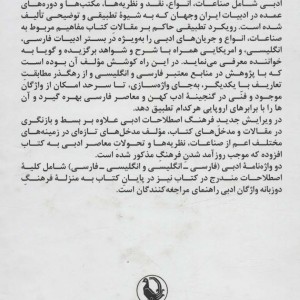 ادبی شامل صناعات، انواع، نقد و نظریه‌ها، مکتب‌ها و دوره‌های
عمده در ادبیات ایران و جهان که به شیوهٔ تطبیقی و توضیحی تألیف
شده است. رویکرد تطبیقی حاکم بر مقالات کتاب مفاهیم مربوط به
صناعات، انواع و جریان‌های ادبی را به‌ویژه در بستر ادبیات فارسی،
انگلیسی، و امریکایی همراه با شرح و شواهد برگزیده و گویا به
خواننده معرفی می‌نماید. در این راه کوشش مؤلف آن بوده است
که با پژوهش در منابع معتبر فارسی و انگلیسی و از رهگذر مطابقت
تعاریف با یکدیگر، به‌جای واژه‌سازی، تا سرحد امکان از واژگان
موجود و فنّی در گنجینهٔ ادب کهن و معاصر فارسی بهره گیرد و آن
ها را با برابرهای اروپایی هرکدام تطبیق دهد.
در ویرایش جدید فرهنگ اصطلاحات ادبی علاوه بر بسط و بازنگری
در مقالات و مدخل‌های کتاب، مؤلف مدخل‌های تازه‌ای در زمینه‌های
مختلف اعم از صناعات، نظریه‌ها و تحولات معاصر ادبی به کتاب
افزوده که موجب روزآمد شدن فرهنگ مذکور شده است.
دو واژه‌نامهٔ ادبی (فارسی ـ انگلیسی و انگلیسی ـ فارسی) شامل کلیهٔ
اصطلاحات مندرج در کتاب نیز در پایان کتاب به منزلهٔ فرهنگ
دوزبانه واژگان ادبی راهنمای مراجعه‌کنندگان است.